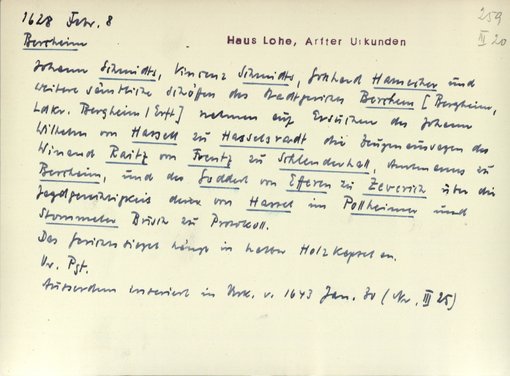 1628 Febr. 8
259
III 20
Bercheim
Haus Lohe, Arfter Urkunden
Johann Schmidts, Vinzenz Schmidts, Godhard Hamecher und
weitere sämtliche Schöffen des Stadtgerichts Berchem [Bergheim,
Ldkr. Bergheim/Erft] nehmen auf Ersuchen des Johann
Wilhelm von Hassell zu Hasselsradt die Zeugenaussagen des
Winand Raitz von Frentz zu Schlenderhall, Amtmanns zu
Bercheim, und des Goddert von Efferen zu Zeverich über die
Jagdgerechtigkeit derer von Hassel im Pollheimer und
Stommeler Büsch zu Protokoll.
Das Gerichtssiegel hängt in halber Holzkapsel an.
Or. Pgt.
Ausserdem inseriert in Urk. v. 1643 Jan. 30 (Nr. III 25)